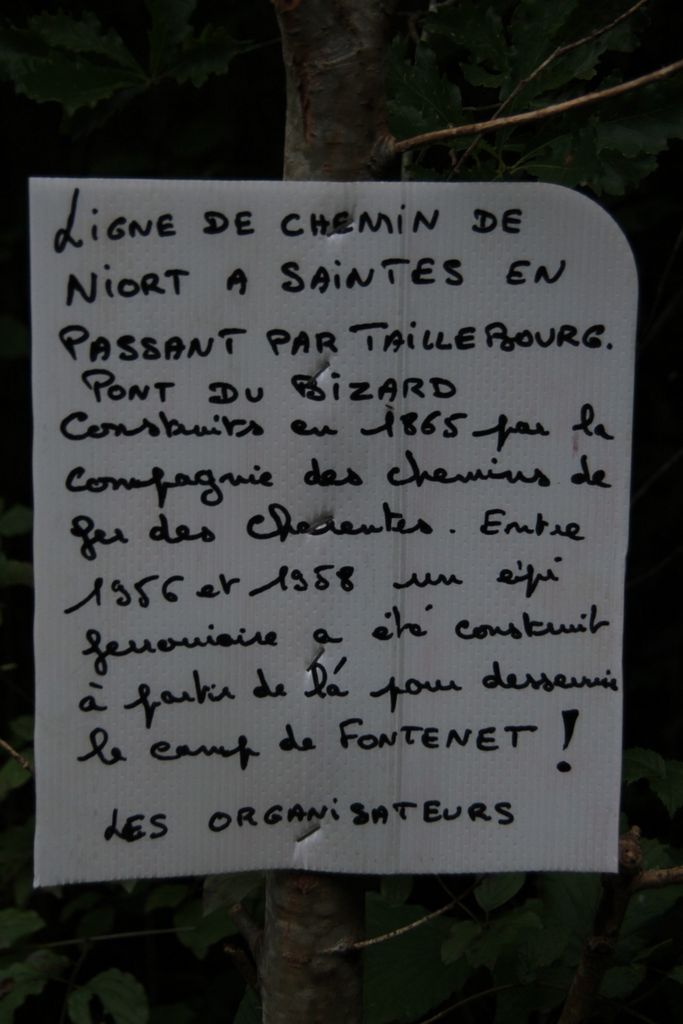 LIGNE DE CHEMIN DE
NIORT A SAINTES EN
PASSANT PAR TAILLEBOURG.
PONT DU BIZARD
Construits en 1865 par la
compagnie des chemins de
fer des Charentes. Entre
1956 et 1958 un épi
ferroviaire a été construit
à partir de là pour desservir
le camp de FONTENET !
LES ORGANISATEURS